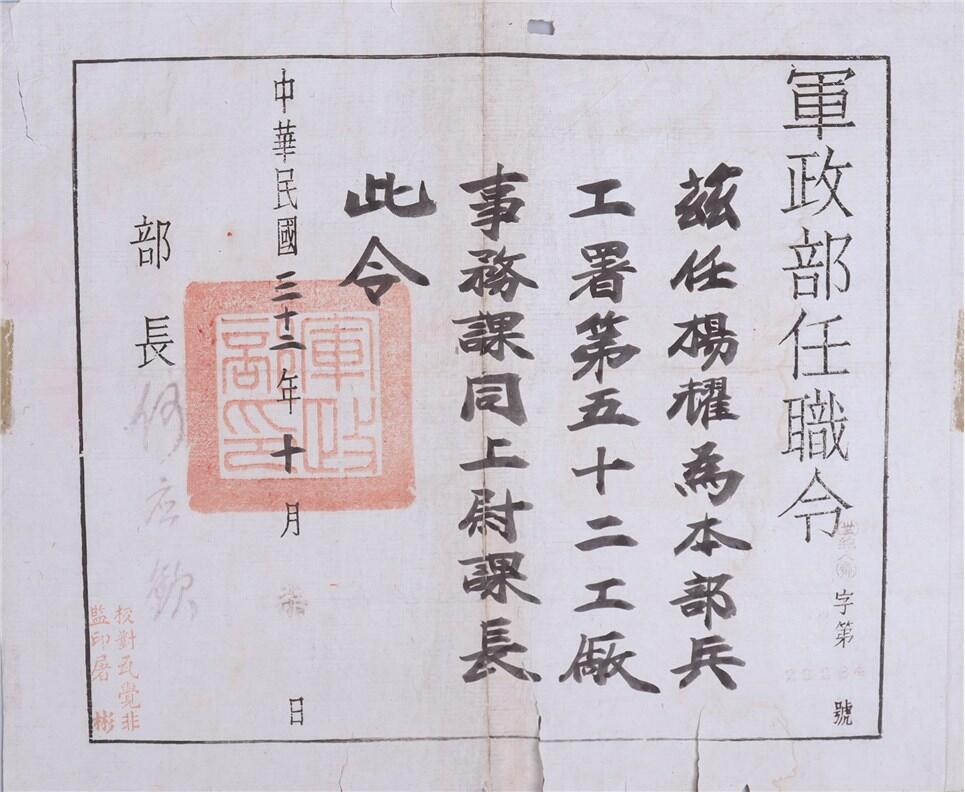 軍政部任職令
字第
號
茲任楊櫂為本部兵
工署第五十二工廠
事務課同上尉課長
此令
中華民國三十二年十月日
軍政部印
部長何应欽
校對 覺非
監印屠彬